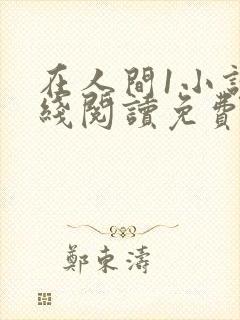 在人間1小說
綫閱讀免費
鄭東濤